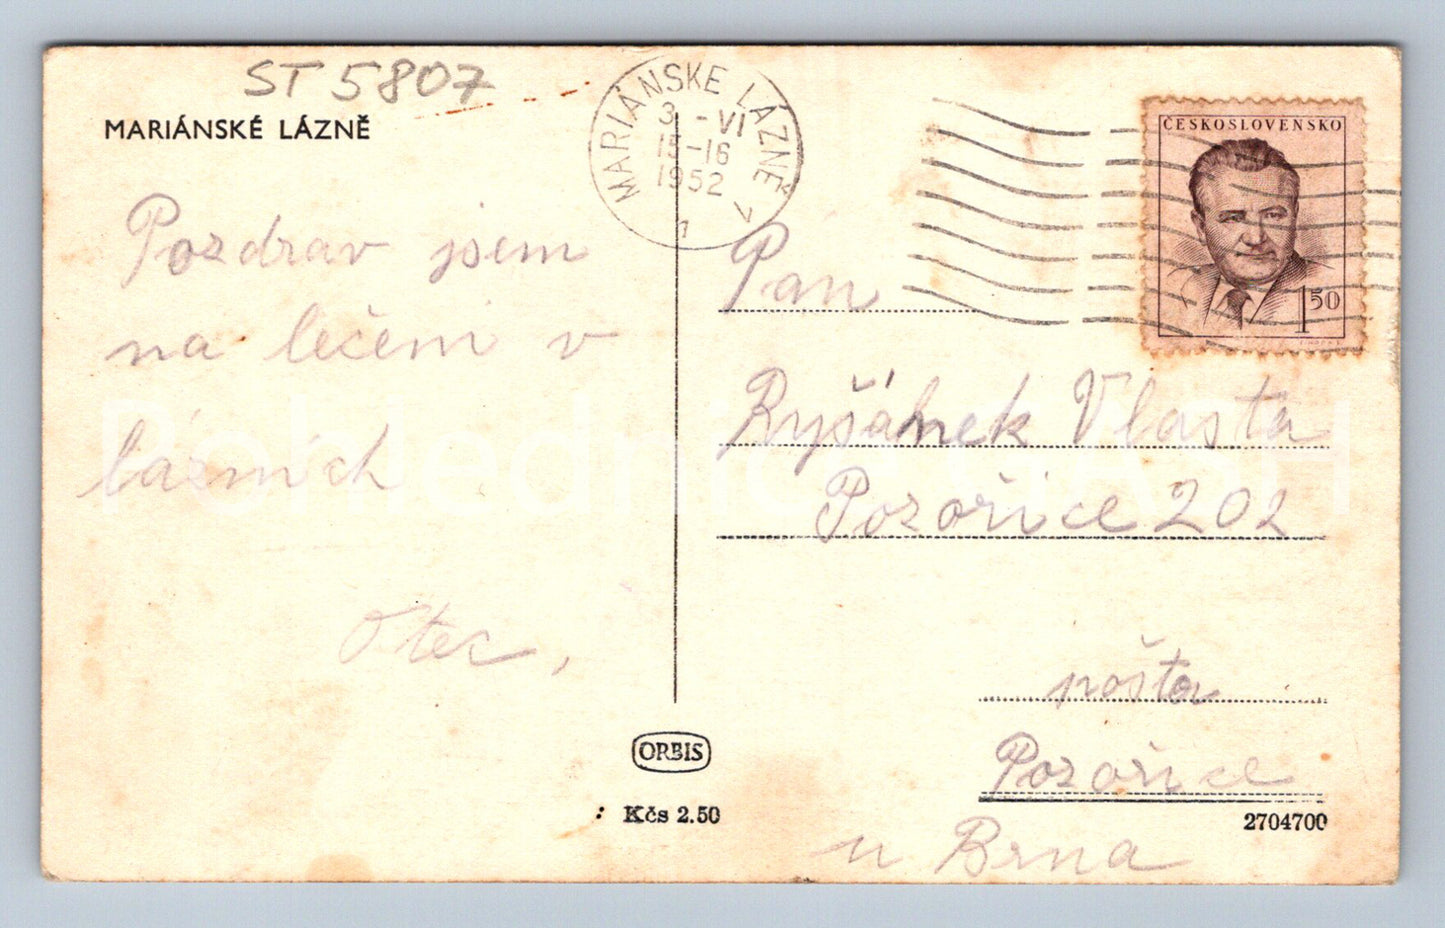 ST 5807
MARIÁNSKÉ LÁZNĚ
MARIÁNSKÉ LÁZNĚ 7
3. -VI
15-16
1952
1
ČESKOSLOVENSKO
1 50
Pozdrav jsem
na léčení v
lázních
Otec,
Pan
Ryšánek Vlasta
Pozořice 202
pošta
Pozořice
u Brna
ORBIS
Kčs 2.50
2704700
Pohlednice